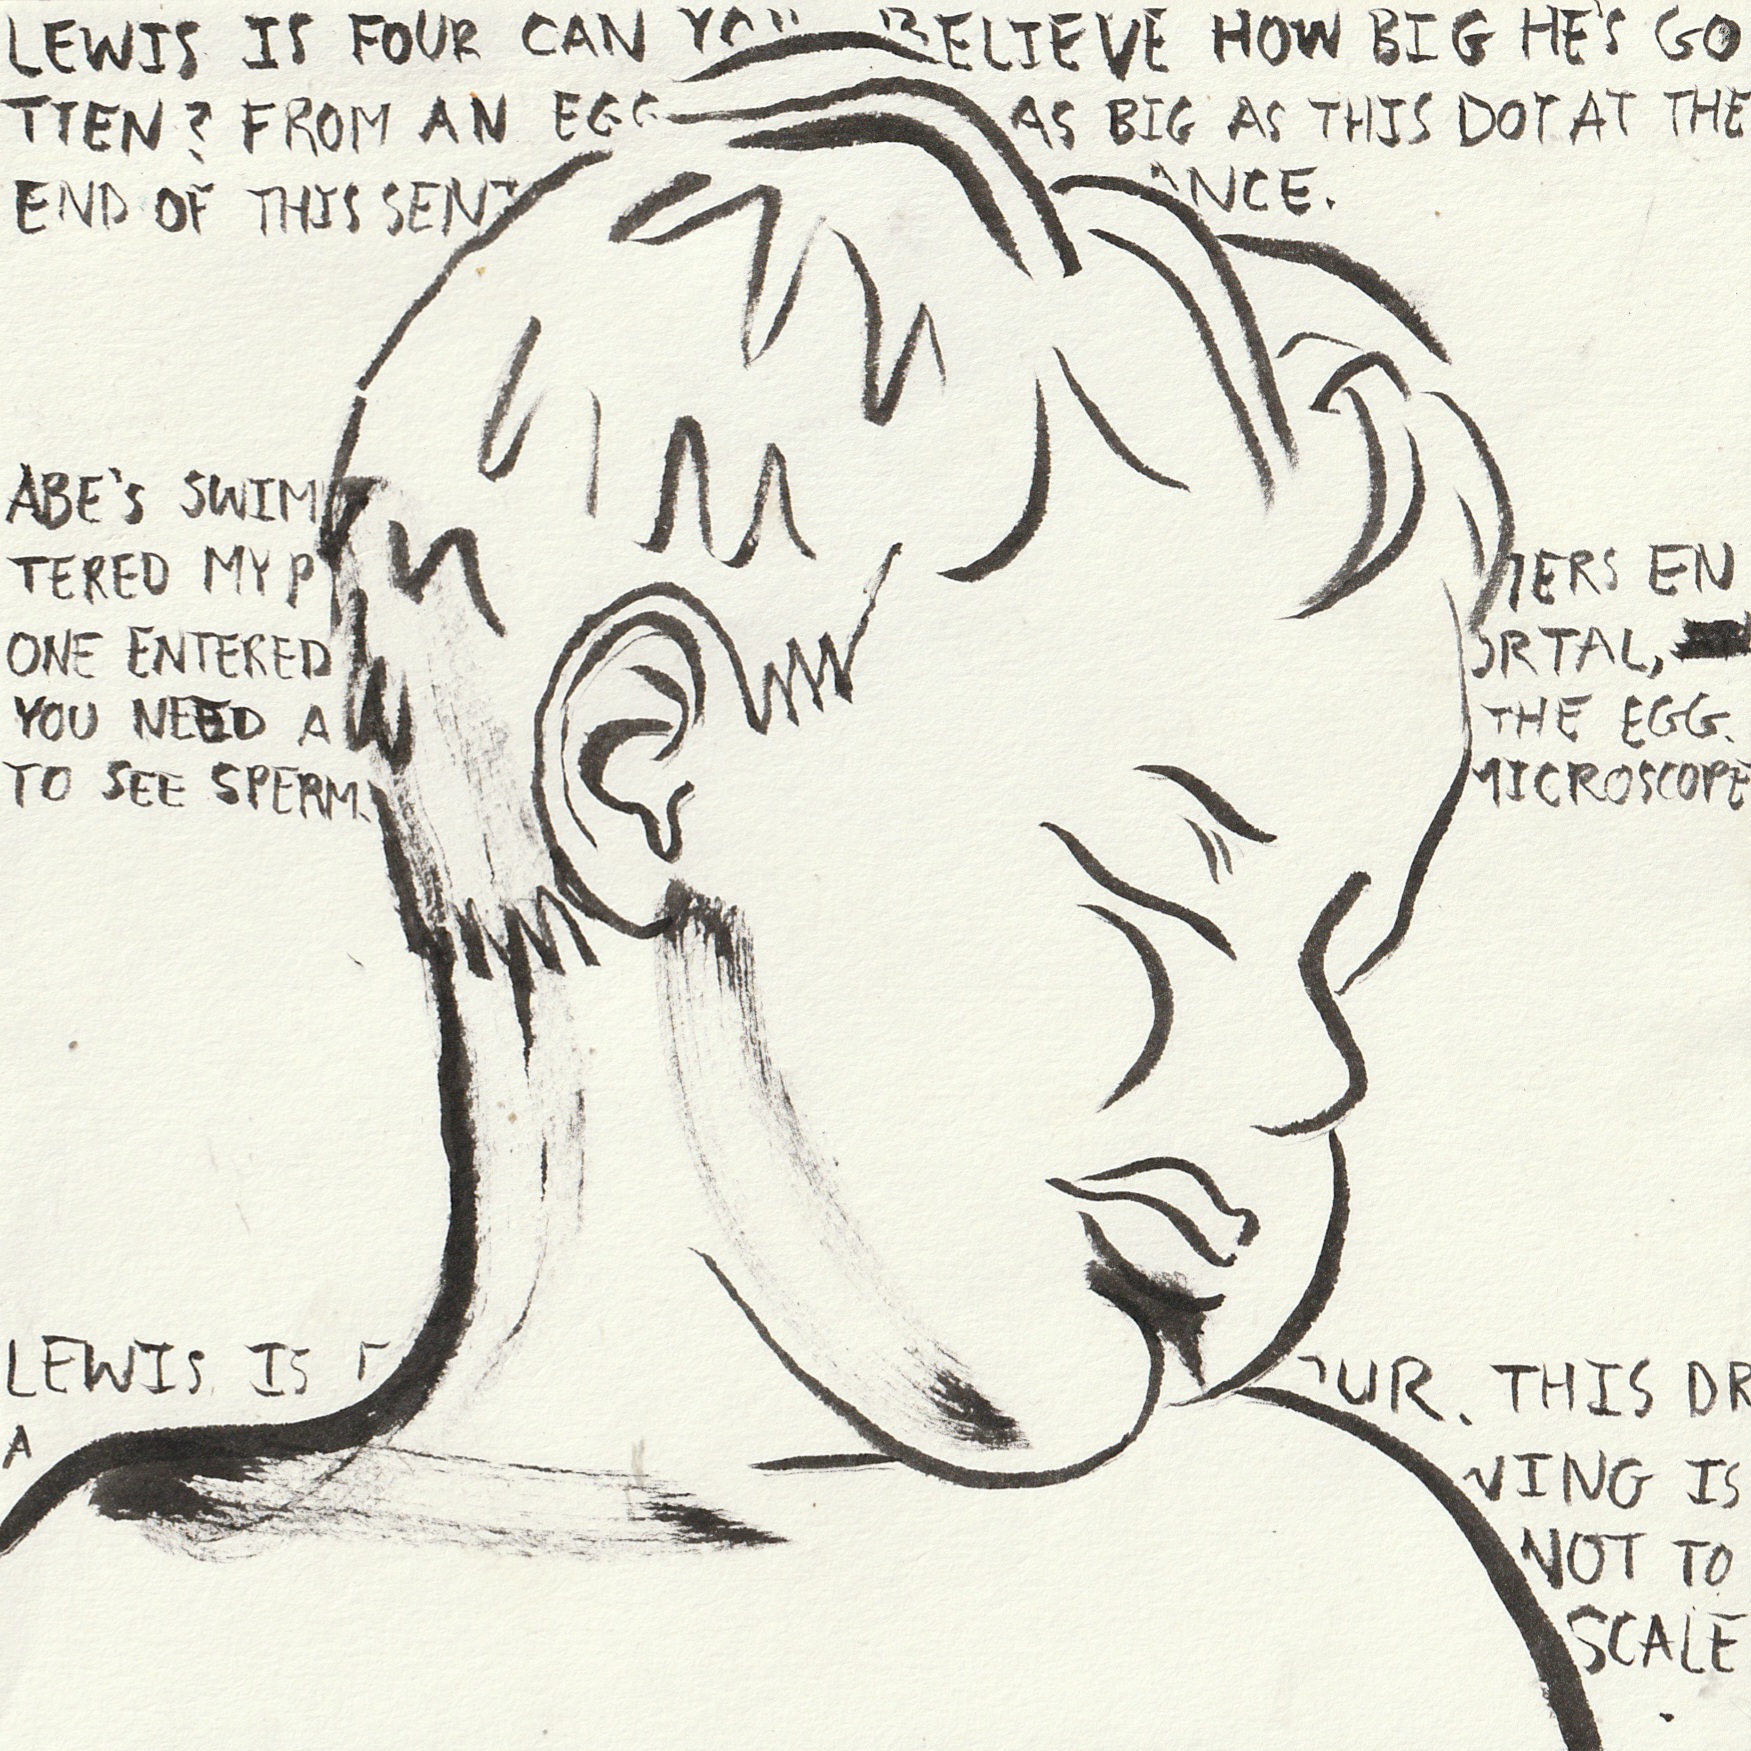 LEWIS IS FOUR CAN YOU BELIEVE HOW BIG HE'S GO
TTEN? FROM AN EGG AS BIG AS THIS DOT AT THE
END OF THIS SENTANCE.
ABE'S SWIMMERS EN
TERED MY PORTAL,
ONE ENTERED THE EGG.
YOU NEED A MICROSCOPE
TO SEE SPERM.
LEWIS IS FOUR. THIS DR
A WING IS
NOT TO
SCALE.